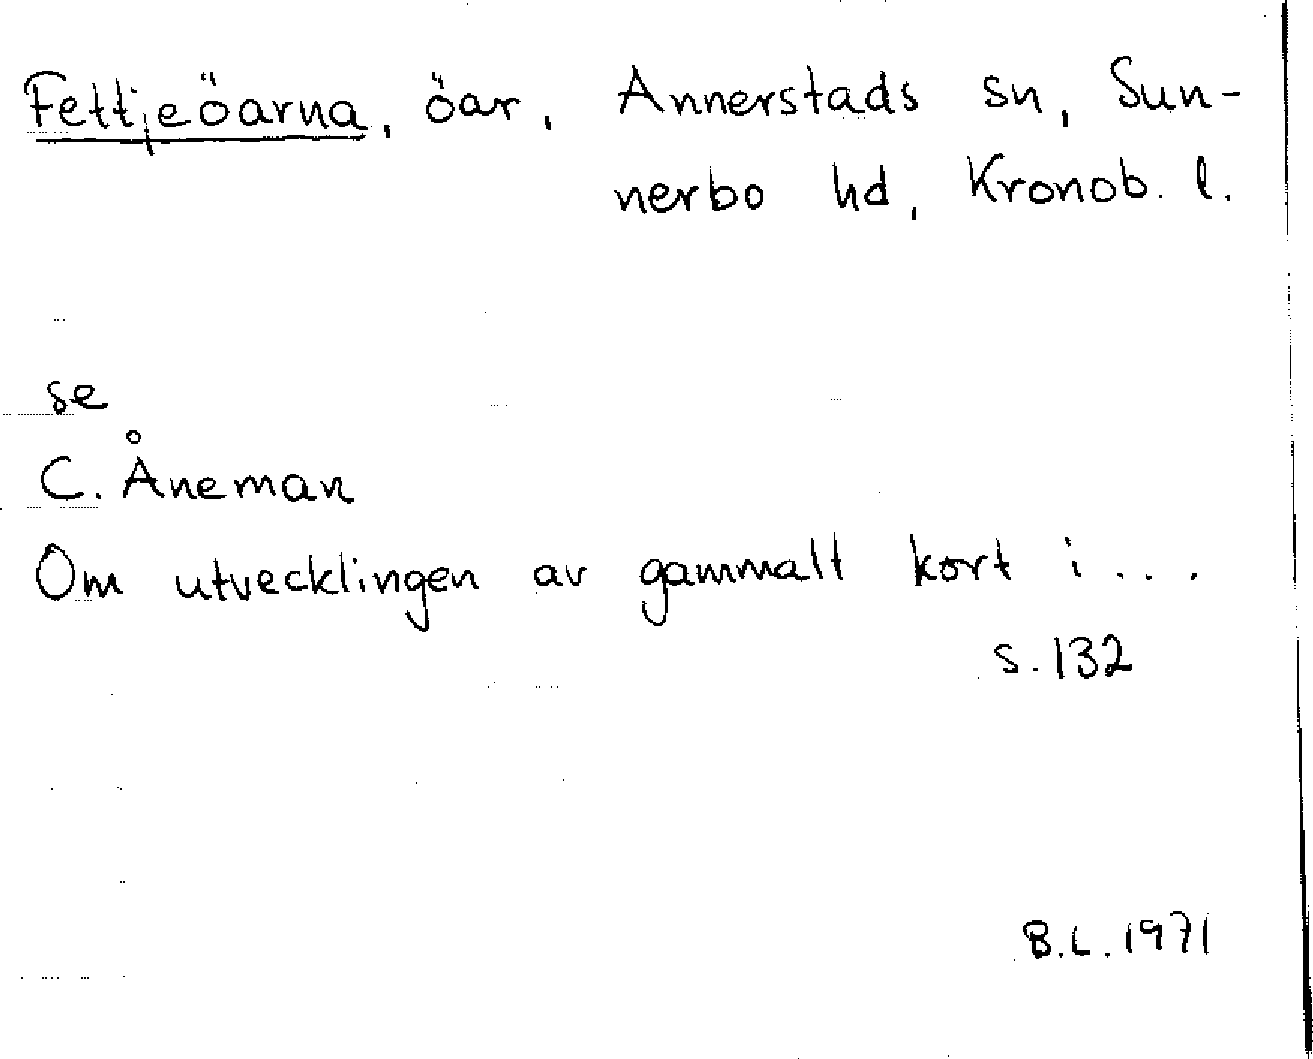 Fettjeöarna, öar, Annerstads sn, Sun-
nerbo hd, Kronob. l.
se
C. Åneman
Om utvecklingen av gammalt kort i...
s. 132
B.L. 1971